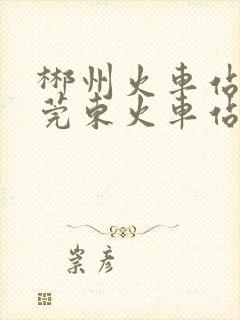 郴州火車佔
莞東火車佔
崇彦